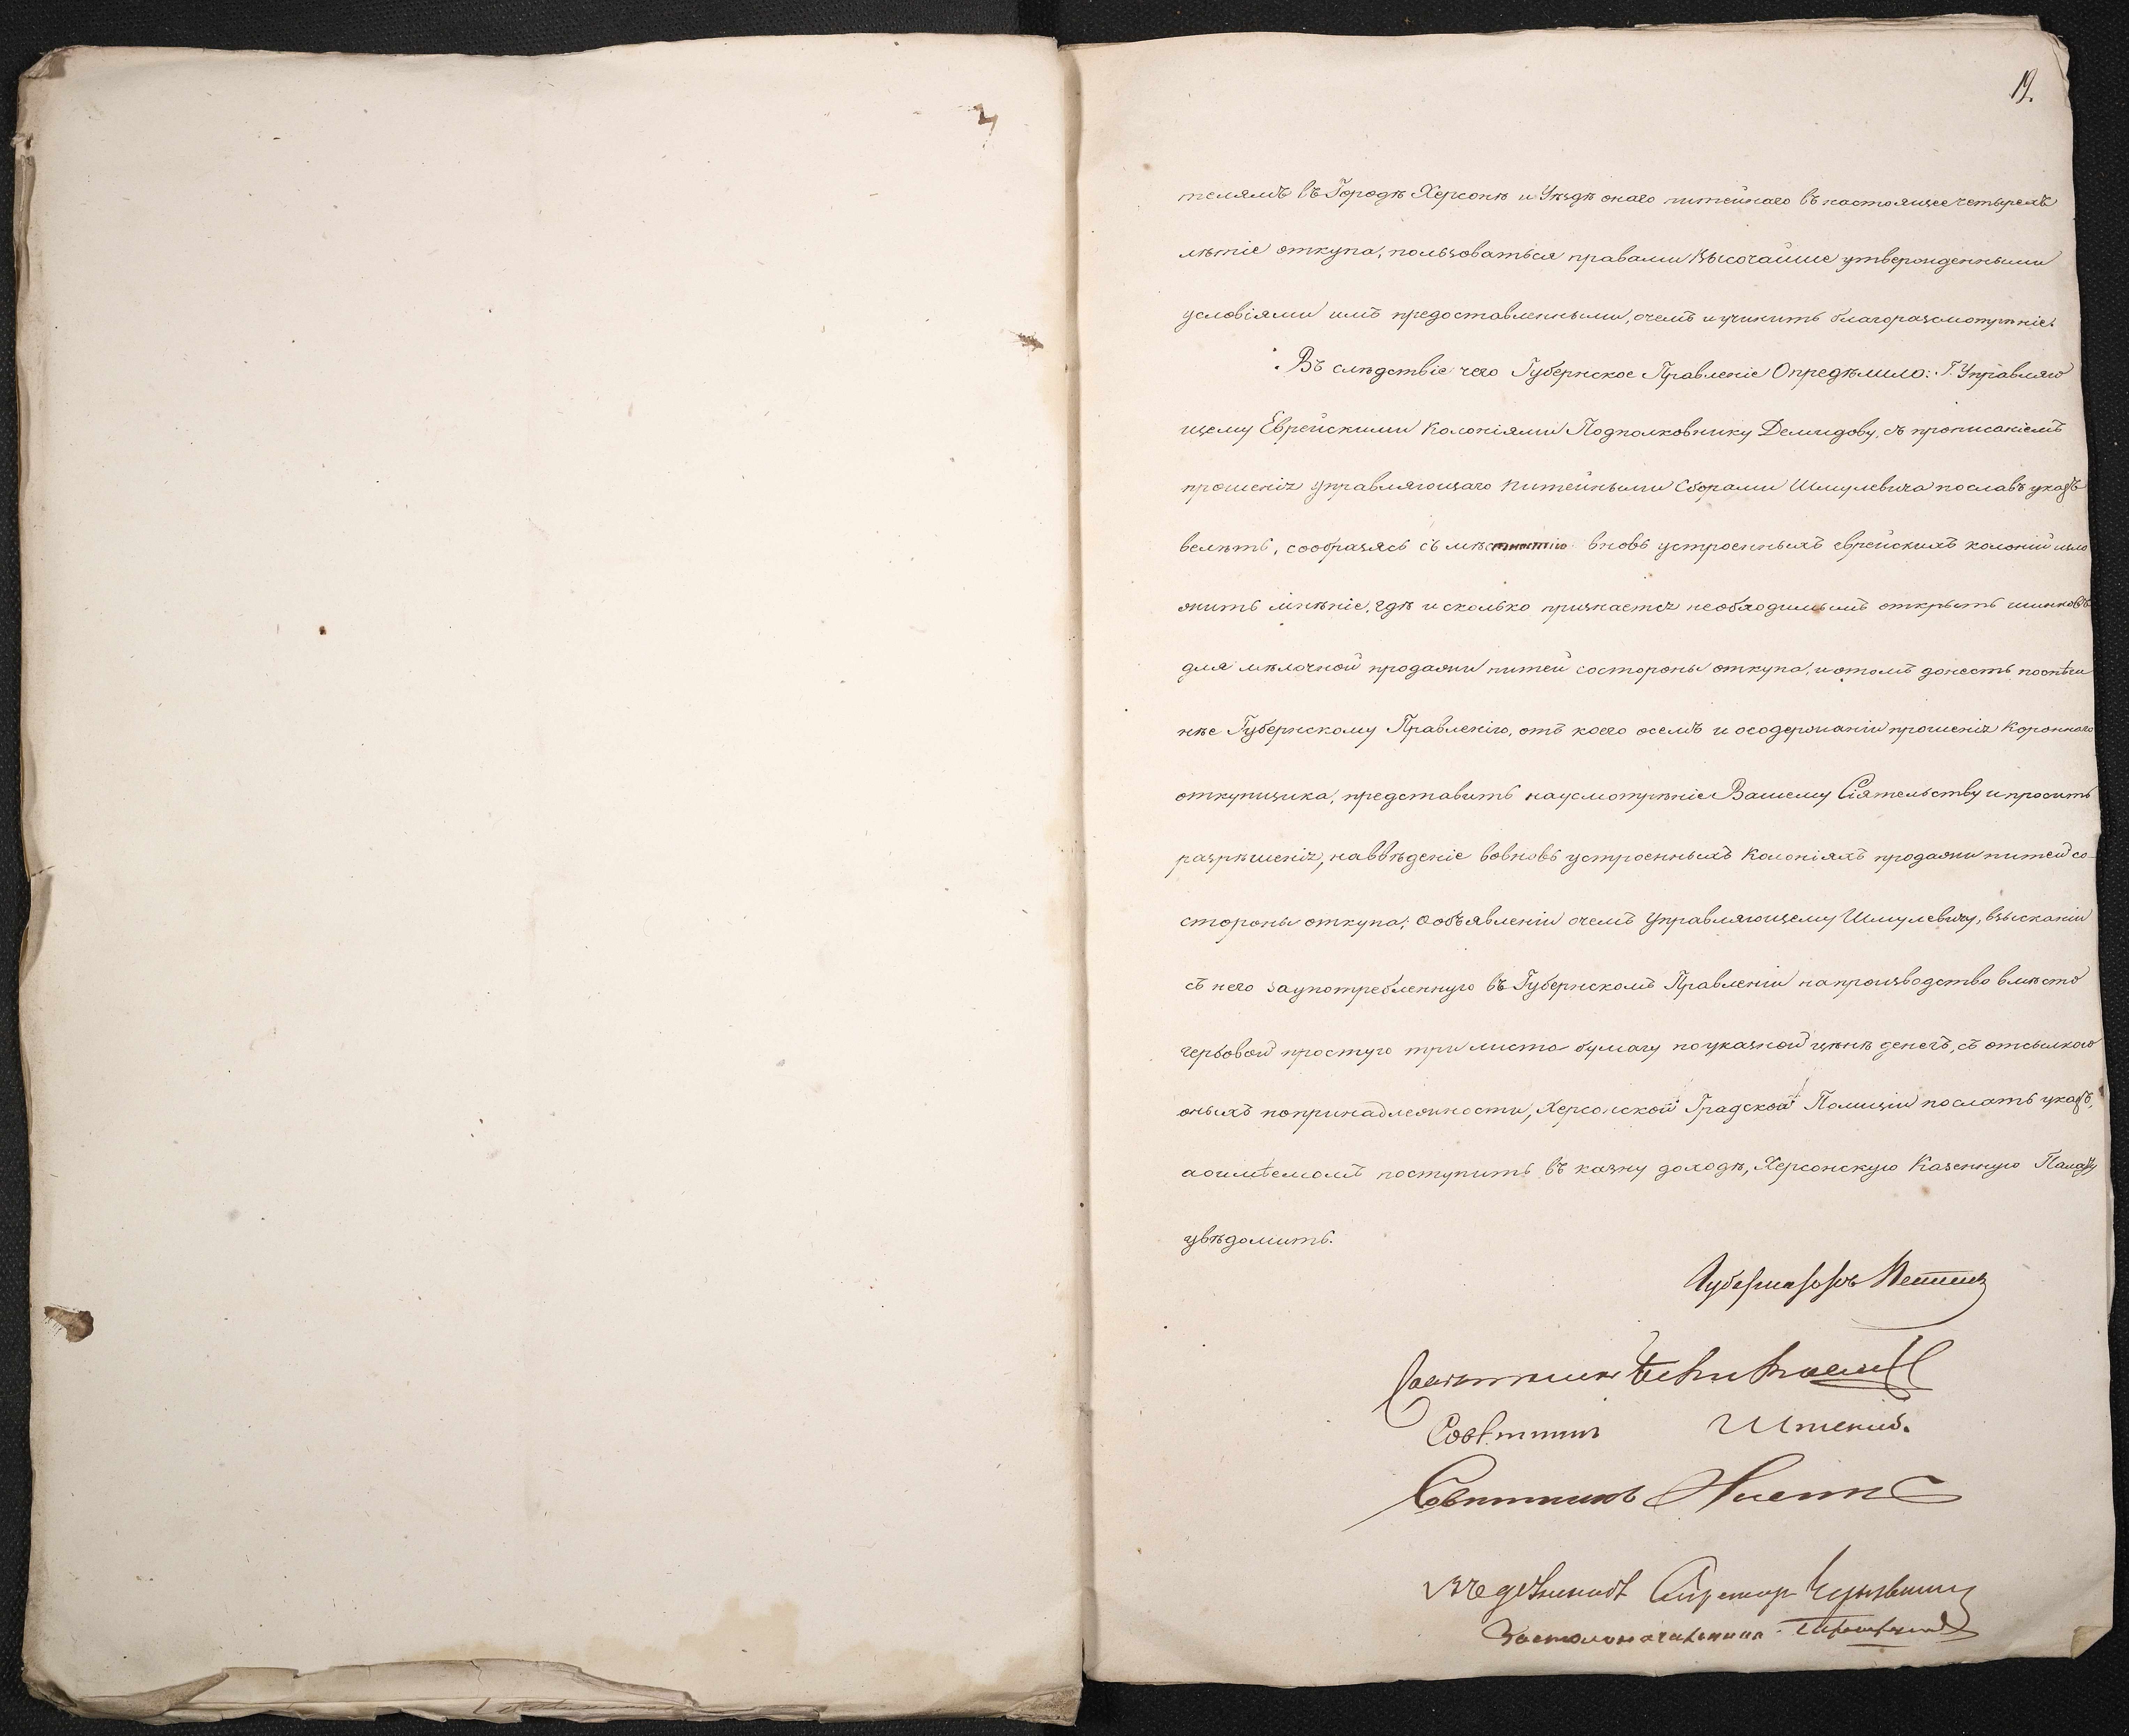 19.
телямъ въ Городѣ Херсонѣ и Уѣздѣ онаго питейнаго въ настоящее четырехъ
лѣтіе откупа, пользоваться правами Высочайше утвержденными
условіями имъ предоставленными, очемъ и учинить благоразсмотрѣніе.
Въ слѣдствіе чего Губернское Правленіе Опредѣлило: Г. Управляю
щему Еврейскими Колоніями Подполковнику Демидову, съ прописаніемъ
прошенія управляющаго питейными Сборами Шмулевича пославъ указъ
велѣть, сообразясь съ мѣстностію вновь устроенныхъ еврейскихъ колоній изло
жить мнѣніе, гдѣ и сколько признается необходимымъ открыть шинковъ
для мѣлочной продажи питей состороны откупа, и отомъ донесть поспѣш
нѣе Губернскому Правленію, отъ коего осемъ и осодержаніи прошенія Короннаго
откупщика, представить наусмотрѣніе Вашему Сіятельству и просить
разрѣшенія, наввѣденіе вовновь устроенныхъ Колоніяхъ продажи питей со-
стороны откупа; Ообъявленіи очемъ Управляющему Шмулевичу, взысканіи
съ него заупотребленную въ Губернскомъ Правленіи напроизводство вмѣсто
гербовой простую три листа бумагу поуказной цѣнѣ денегъ, съ отсылкою
оныхъ попринадлежности, Херсонской Градской Полиціи послать указъ,
аоимѣемомъ поступить въ казну доходѣ, Херсонскую Казенную Палату
увѣдомить.
Губернаторъ
Совѣтникъ
Совѣтникъ
Совѣтникъ
Секретарь
Застолоначальника